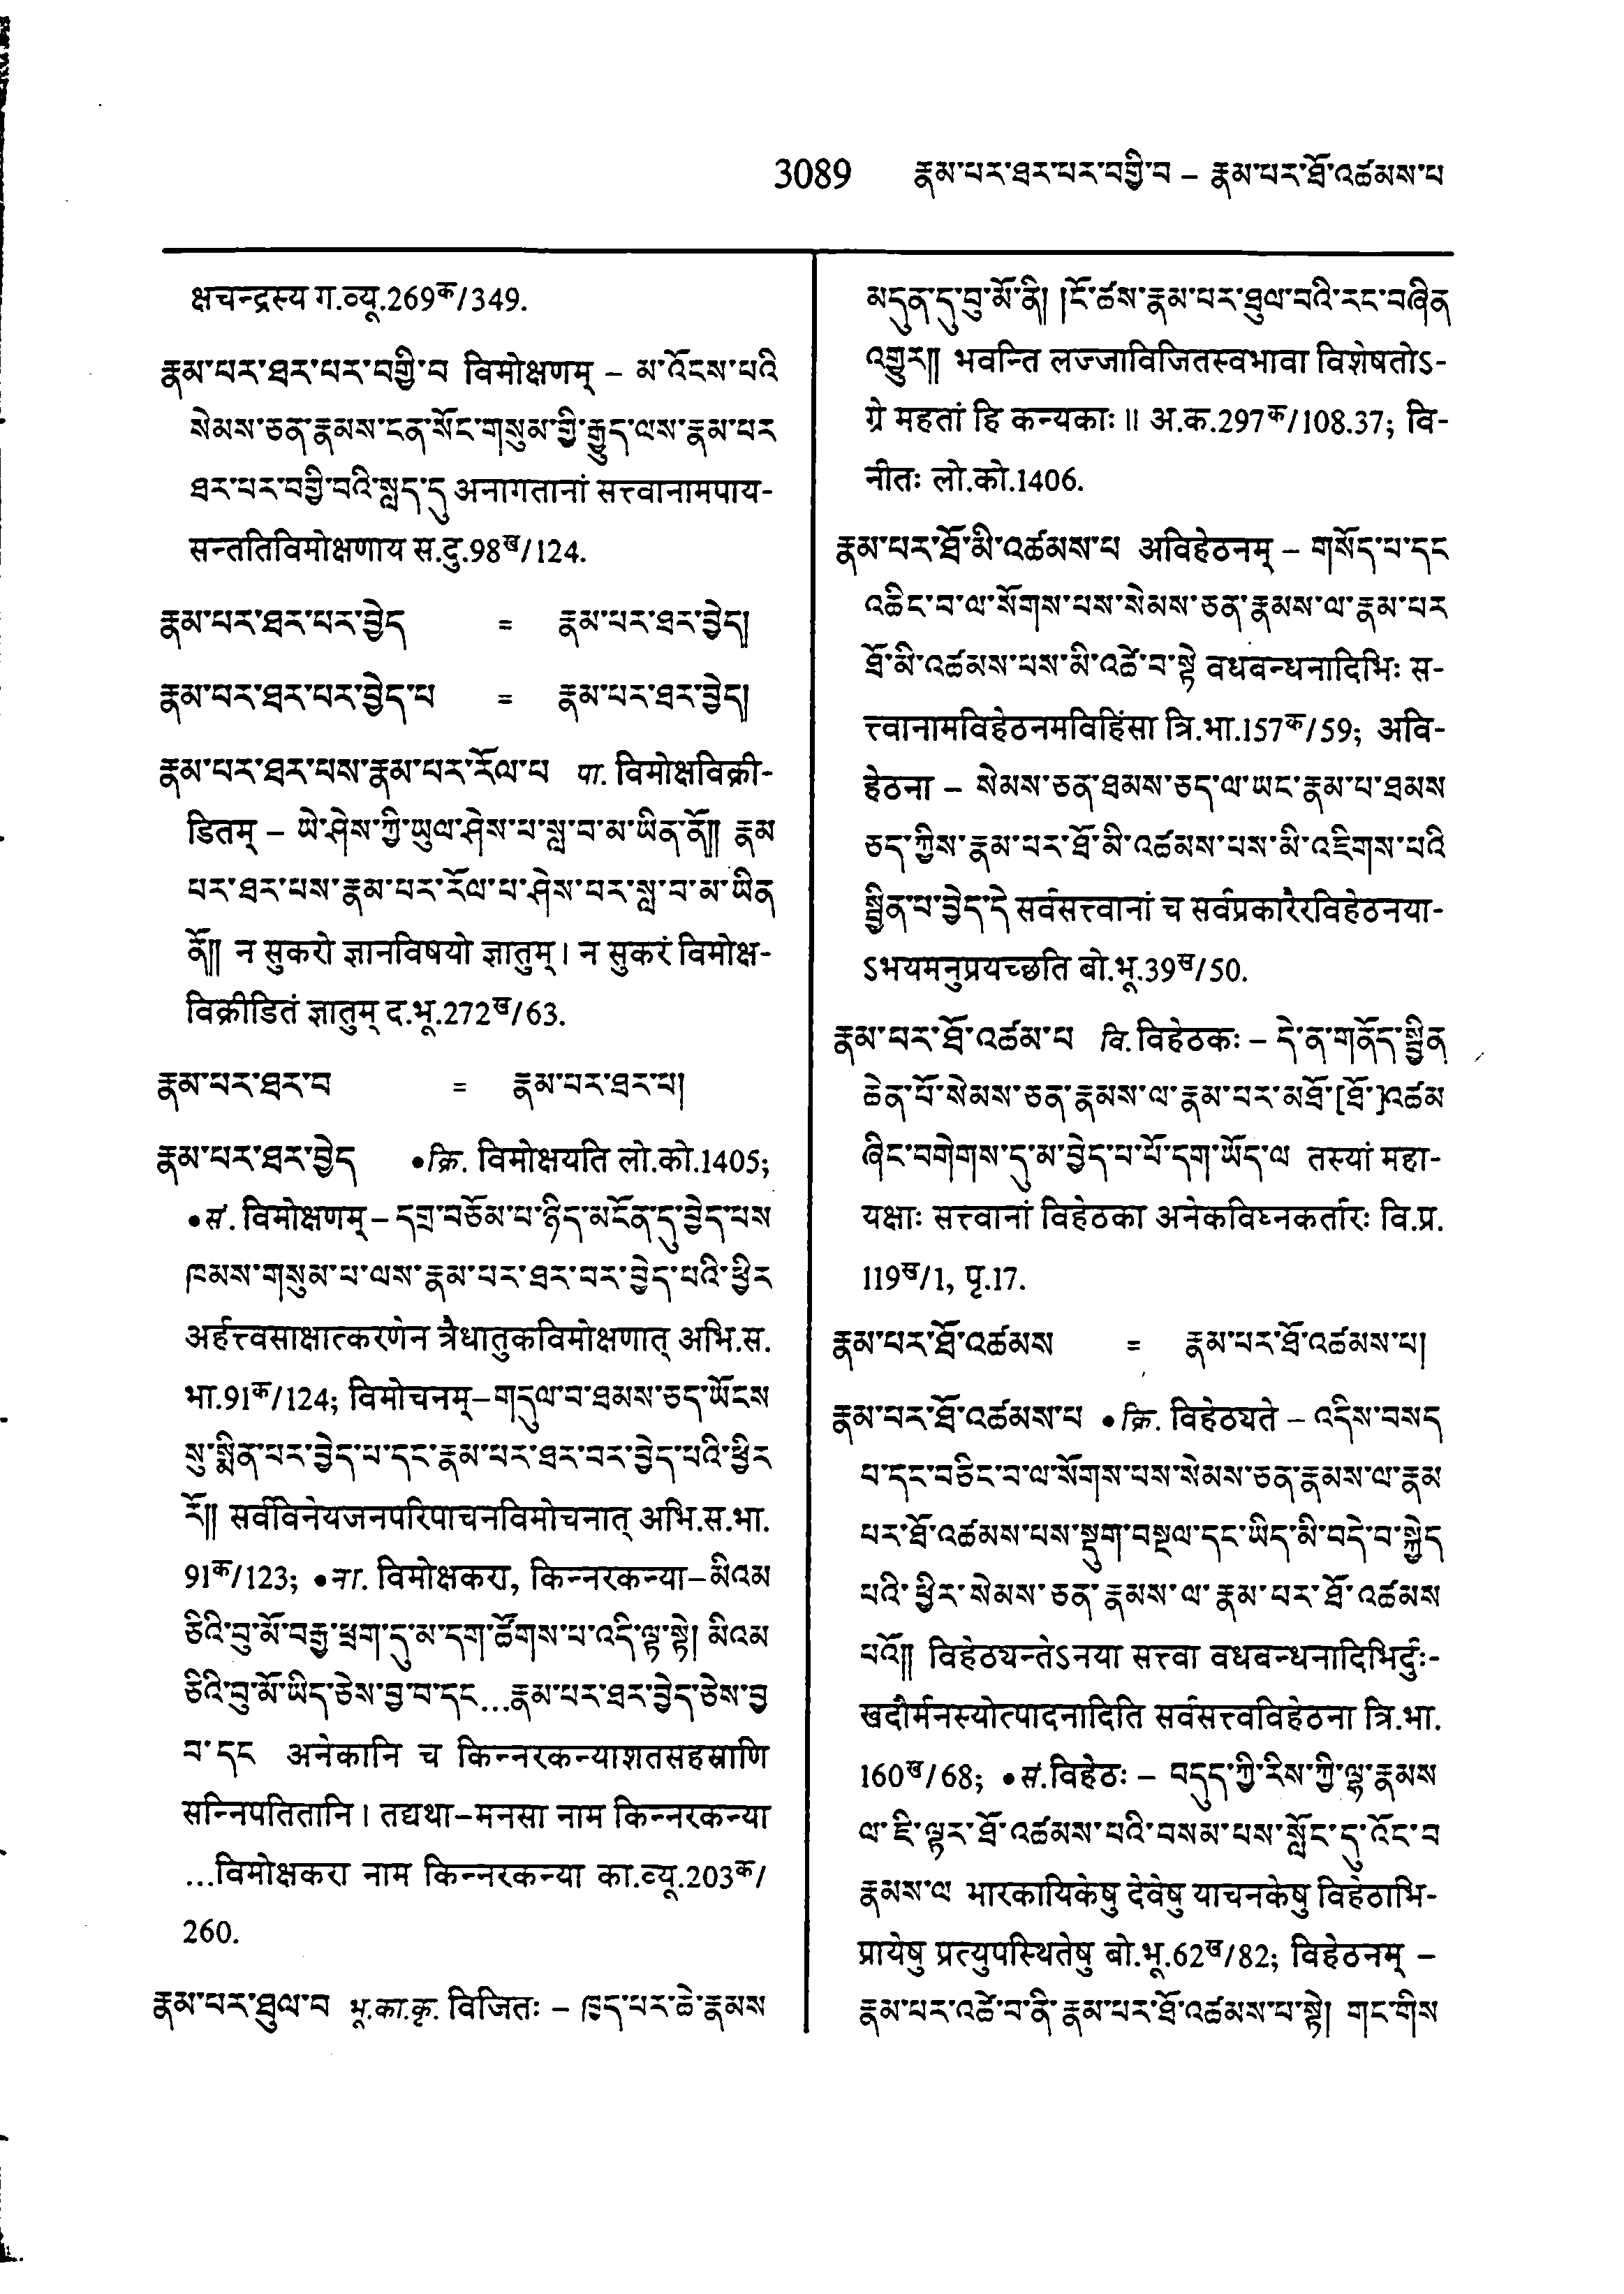 3089 རྣམ་པར་ཐར་པར་བགྱི་བ – རྣམ་པར་ཐོ་འཚམས་པ
क्षचन्द्रस्य ग.व्यू.269क/349.
རྣམ་པར་ཐར་པར་བགྱི་བ विमोक्षणम् – མ་འོངས་པའི
སེམས་ཅན་རྣམས་ངན་སོང་གསུམ་གྱི་རྒྱུད་ལས་རྣམ་པར
ཐར་པར་བགྱི་བའི་སླད་དུ अनागतानां सत्त्वानामपाय-
सन्ततिविमोक्षणाय स.दु.98ख/124.
རྣམ་པར་ཐར་པར་བྱེད = རྣམ་པར་ཐར་བྱེད།
རྣམ་པར་ཐར་པར་བྱེད་པ = རྣམ་པར་ཐར་བྱེད།
རྣམ་པར་ཐར་པས་རྣམ་པར་རོལ་པ पा. विमोक्षविक्री-
डितम् – ཡེ་ཤེས་ཀྱི་ཡུལ་ཤེས་པ་སླ་བ་མ་ཡིན་ནོ༎ རྣམ
པར་ཐར་པས་རྣམ་པར་རོལ་པ་ཤེས་པར་སླ་བ་མ་ཡིན
ནོ༎ न सुकरो ज्ञानविषयो ज्ञातुम्। न सुकरं विमोक्ष-
विक्रीडितं ज्ञातुम् द.भू.272ख/63.
རྣམ་པར་ཐར་བ = རྣམ་པར་ཐར་པ།
རྣམ་པར་ཐར་བྱེད •क्रि. विमोक्षयति लो.को.1405;
•सं. विमोक्षणम् – དགྲ་བཅོམ་པ་ཉིད་མངོན་དུ་བྱེད་པས
ཁམས་གསུམ་པ་ལས་རྣམ་པར་ཐར་བར་བྱེད་པའི་ཕྱིར
अर्हत्त्वसाक्षात्करणेन त्रैधातुकविमोक्षणात् अभि.स.
भा.91क/124; विमोचनम् – གདུལ་བ་ཐམས་ཅད་ཡོངས
སུ་སྨིན་པར་བྱེད་པ་དང་རྣམ་པར་ཐར་བར་བྱེད་པའི་ཕྱིར
རོ༎ सर्वविनेयजनपरिपाचनविमोचनात् अभि.स.भा.
91क/123; •ना. विमोक्षकरा, किन्नरकन्या – མིའམ
ཅིའི་བུ་མོ་བརྒྱ་ཕྲག་དུ་མ་དག་ཚོགས་པ་འདི་ལྟ་སྟེ། མིའམ
ཅིའི་བུ་མོ་ཡིད་ཅེས་བྱ་བ་དང...རྣམ་པར་ཐར་བྱེད་ཅེས་བྱ
བ་དང अनेकानि च किन्नरकन्याशतसहस्राणि
सन्निपतितानि। तद्यथा – मनसा नाम किन्नरकन्या
...विमोक्षकरा नाम किन्नरकन्या का.व्यू.203क/
260.
རྣམ་པར་ཐུལ་བ भू.का.कृ. विजितः – ཁྱད་པར་ཆེ་རྣམས
མདུན་དུ་བུ་མོ་ནི། །ངོ་ཚས་རྣམ་པར་ཐུལ་བའི་རང་བཞིན
འགྱུར༎ भवन्ति लज्जाविजितस्वभावा विशेषतोऽ-
ग्रे महतां हि कन्यकाः॥ अ.क.297क/108.37; वि-
नीतः लो.को.1406.
རྣམ་པར་ཐོ་མི་འཚམས་པ अविहेठनम् – གསོད་པ་དང
འཆིང་བ་ལ་སོགས་པས་སེམས་ཅན་རྣམས་ལ་རྣམ་པར
ཐོ་མི་འཚམས་པས་མི་འཚེ་བ་སྟེ वधबन्धनादिभिः स-
त्त्वानामविहेठनमविहिंसा त्रि.भा.157क/59; अवि-
हेठना – སེམས་ཅན་ཐམས་ཅད་ལ་ཡང་རྣམ་པ་ཐམས
ཅད་ཀྱིས་རྣམ་པར་ཐོ་མི་འཚམས་པས་མི་འཇིགས་པའི
སྦྱིན་པ་བྱེད་དེ सर्वसत्त्वानां च सर्वप्रकारैरविहेठनया-
ऽभयमनुप्रयच्छति बो.भू.39ख/50.
རྣམ་པར་ཐོ་འཚམ་པ वि. विहेठकः – དེ་ན་གནོད་སྦྱིན
ཆེན་པོ་སེམས་ཅན་རྣམས་ལ་རྣམ་པར་མཐོ་[ཐོ་]འཚམ
ཞིང་བགེགས་དུ་མ་བྱེད་པ་པོ་དག་ཡོད་ལ तस्यां महा-
यक्षाः सत्त्वानां विहेठका अनेकविघ्नकर्तारः वि.प्र.
119ख/1, पृ.17.
རྣམ་པར་ཐོ་འཚམས = རྣམ་པར་ཐོ་འཚམས་པ།
རྣམ་པར་ཐོ་འཚམས་པ •क्रि. विहेठ्यते – འདིས་བསད
པ་དང་བཅིང་བ་ལ་སོགས་པས་སེམས་ཅན་རྣམས་ལ་རྣམ
པར་ཐོ་འཚམས་པས་སྡུག་བསྔལ་དང་ཡིད་མི་བདེ་བ་སྐྱེད
པའི་ཕྱིར་སེམས་ཅན་རྣམས་ལ་རྣམ་པར་ཐོ་འཚམས
པའོ༎ विहेठ्यन्तेऽनया सत्त्वा वधबन्धनादिभिर्दुः-
खदौर्मनस्योत्पादनादिति सर्वसत्त्वविहेठना त्रि.भा.
160ख/68; •सं.विहेठः – བདུད་ཀྱི་རིས་ཀྱི་ལྷ་རྣམས
ལ་ཇི་ལྟར་ཐོ་འཚམས་པའི་བསམ་པས་སློང་དུ་འོང་བ
རྣམས་ལ मारकायिकेषु देवेषु याचनकेषु विहेठाभि-
प्रायेषु प्रत्युपस्थितेषु बो.भू.62ख/82; विहेठनम् –
རྣམ་པར་འཚེ་བ་ནི་རྣམ་པར་ཐོ་འཚམས་པ་སྟེ། གང་གིས